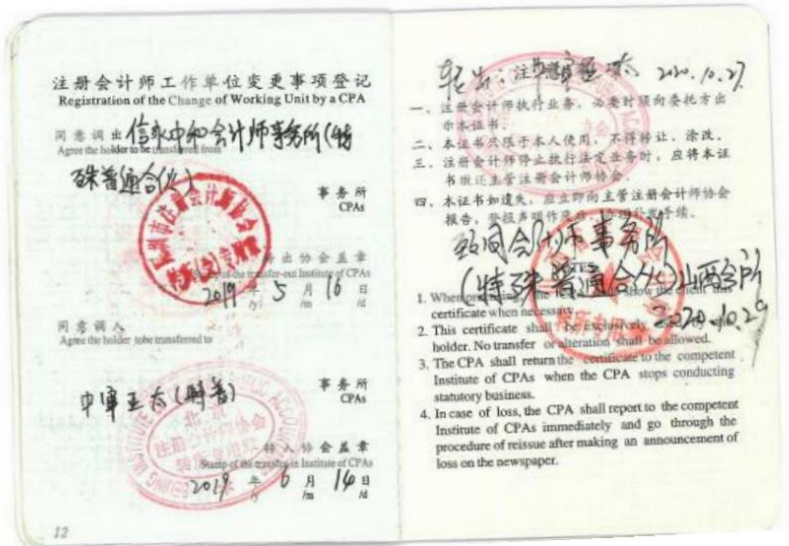 注册会计师工作单位变更事项登记
Registration of the Change of Working Unit by a CPA
同意调出 信永中和会计师事务所(特
Agree the holder to be transferred from
殊普通合伙)
事务所
CPAs
转出协会盖章
Stamp of the transfer-out Institute of CPAs
2019 年 5 月 16 日
/y /m /d
同意调入
Agree the holder to be transferred to
中审亚太(特普)
事务所
CPAs
北京
注册会计师协会
转入协会盖章
Stamp of the transfer-in Institute of CPAs
2019 年 6 月 14 日
/y /m /d
12
转出: 中审亚太 2020.10.27
一、注册会计师执行业务,必要时须向委托方出
示本证书。
二、本证书只限于本人使用,不得转让、涂改。
三、注册会计师停止执行法定业务时,应将本证
书缴还主管注册会计师协会。
四、本证书如遗失,应立即向主管注册会计师协会
报告,登报声明作废后,办理补发手续。
致同会计师事务所
(特殊普通合伙)山西分所
2020.10.29
1. When practising, the CPA shall show the client this
certificate when necessary.
2. This certificate shall be exclusively used by the
holder. No transfer or alteration shall be allowed.
3. The CPA shall return the certificate to the competent
Institute of CPAs when the CPA stops conducting
statutory business.
4. In case of loss, the CPA shall report to the competent
Institute of CPAs immediately and go through the
procedure of reissue after making an announcement of
loss on the newspaper.